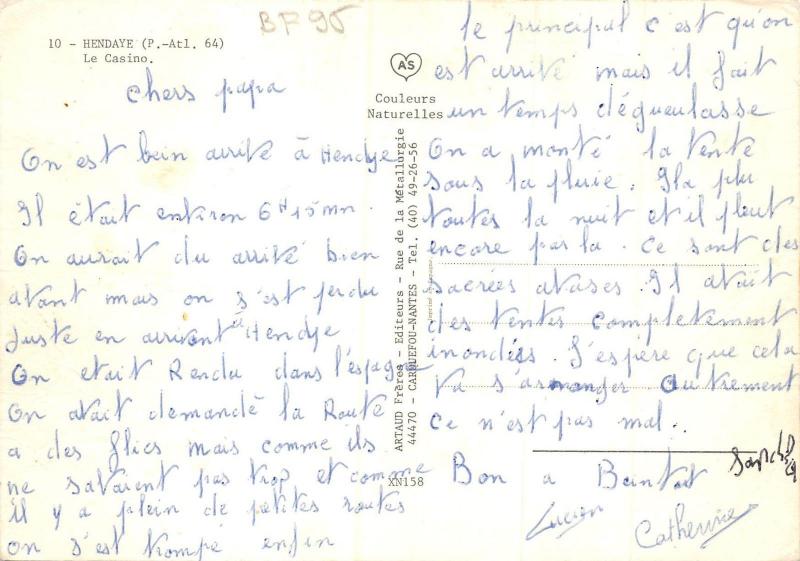 BF 95
10 - HENDAYE (P.-Atl. 64)
Le Casino.
AS
Couleurs
Naturelles
ARTAUD Frères - Editeurs - Rue de la Métallurgie
44470 - CARQUEFOU-NANTES - Tel. (40) 49-26-56
XN158
chers papa
On est bien arrité à Hendje
Il était entiron 6H 15mn.
On aurait du arrité bien
atant mais on s'est perdu
Juste en arrivant à Hendje
On était Rendu dans l'espagne
On atait demandé la Route
a des flics mais comme ils
ne sataient pas trop et comme
il y a plein de petites routes
on s'est trompé enfin
le principal c'est qu'on
est arrité mais il fait
un temps dégueulasse
On a monté la tente
sous la pluie. Il a plu
toutes la nuit et il pleut
encore par la. Ce sont des
sacrées atases. Il atait
des tentes completement
inondées. J'espère que cela
va s'arranger autrement
ce n'est pas mal.
Bon a Bientot
Lucien
Catherine